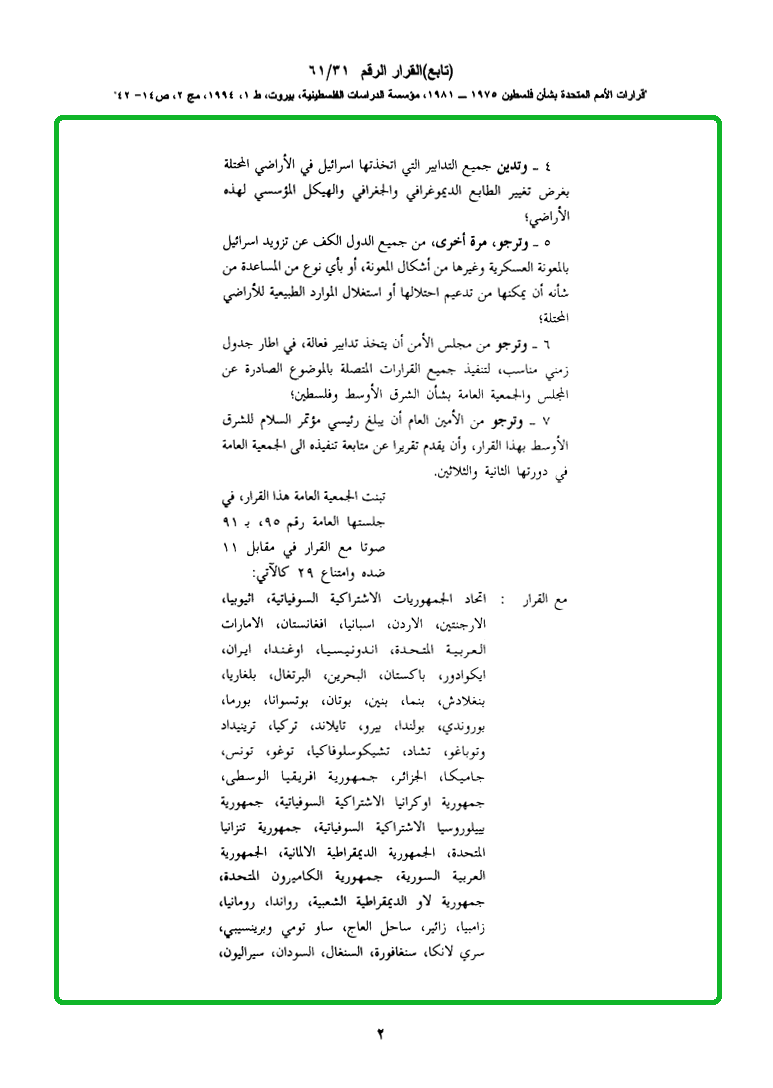 (تابع)القرار الرقم ٦١/٣١
"قرارات الأمم المتحدة بشأن فلسطين ١٩٧٥ ــ ١٩٨١، مؤسسة الدراسات الفلسطينية، بيروت، ط ١، ١٩٩٤، مج ٢، ص١٤- ٤٢"
٤ ـ وتدين جميع التدابير التي اتخذتها اسرائيل في الأراضي المحتلة
بغرض تغيير الطابع الديموغرافي والجغرافي والهيكل المؤسسي لهذه
الأراضي؛
٥ ـ وترجو، مرة أخرى، من جميع الدول الكف عن تزويد اسرائيل
بالمعونة العسكرية وغيرها من أشكال المعونة، أو بأي نوع من المساعدة من
شأنه أن يمكنها من تدعيم احتلالها أو استغلال الموارد الطبيعية للأراضي
المحتلة؛
٦ ـ وترجو من مجلس الأمن أن يتخذ تدابير فعالة، في اطار جدول
زمني مناسب، لتنفيذ جميع القرارات المتصلة بالموضوع الصادرة عن
المجلس والجمعية العامة بشأن الشرق الأوسط وفلسطين؛
٧ ـ وترجو من الأمين العام أن يبلغ رئيسي مؤتمر السلام للشرق
الأوسط بهذا القرار، وأن يقدم تقريرا عن متابعة تنفيذه الى الجمعية العامة
في دورتها الثانية والثلاثين.
تبنت الجمعية العامة هذا القرار، في
جلستها العامة رقم ٩٥، بـ ٩١
صوتا مع القرار في مقابل ١١
ضده وامتناع ٢٩ كالآتي:
مع القرار : اتحاد الجمهوريات الاشتراكية السوفياتية، اثيوبيا،
الارجنتين، الاردن، اسبانيا، افغانستان، الامارات
العربية المتحدة، اندونيسيا، اوغندا، ايران،
ايكوادور، باكستان، البحرين، البرتغال، بلغاريا،
بنغلادش، بنما، بنين، بوتان، بوتسوانا، بورما،
بوروندي، بولندا، بيرو، تايلاند، تركيا، ترينيداد
وتوباغو، تشاد، تشيكوسلوفاكيا، توغو، تونس،
جاميكا، الجزائر، جمهورية افريقيا الوسطى،
جمهورية اوكرانيا الاشتراكية السوفياتية، جمهورية
بييلوروسيا الاشتراكية السوفياتية، جمهورية تنزانيا
المتحدة، الجمهورية الديمقراطية الالمانية، الجمهورية
العربية السورية، جمهورية الكاميرون المتحدة،
جمهورية لاو الديمقراطية الشعبية، رواندا، رومانيا،
زامبيا، زائير، ساحل العاج، ساو تومي وبرينسيبي،
سري لانكا، سنغافورة، السنغال، السودان، سيراليون،
٢